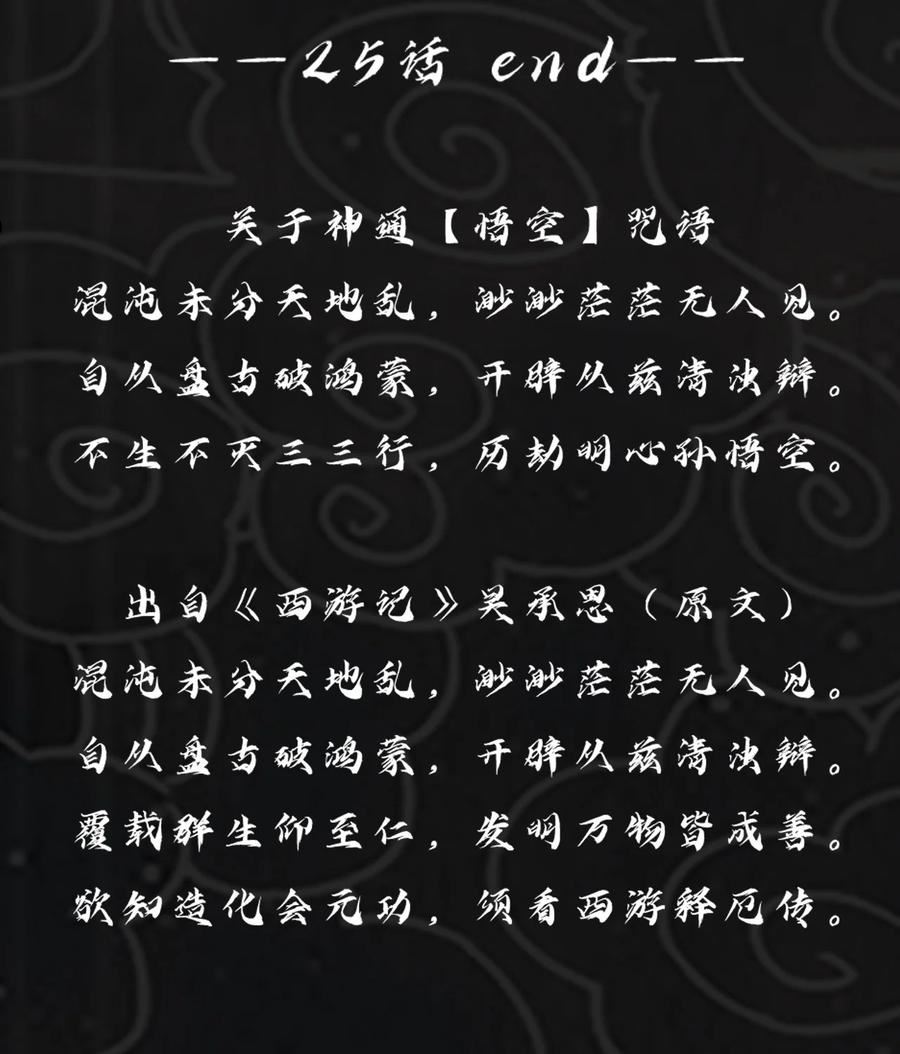 ——25话 end——
关于神通【悟空】咒语
混沌未分天地乱，渺渺茫茫无人见。
自从盘古破鸿蒙，开辟从兹清浊辩。
不生不灭三三行，历劫明心孙悟空。
出自《西游记》吴承恩（原文）
混沌未分天地乱，渺渺茫茫无人见。
自从盘古破鸿蒙，开辟从兹清浊辩。
覆载群生仰至仁，发明万物皆成善。
欲知造化会元功，须看西游释厄传。